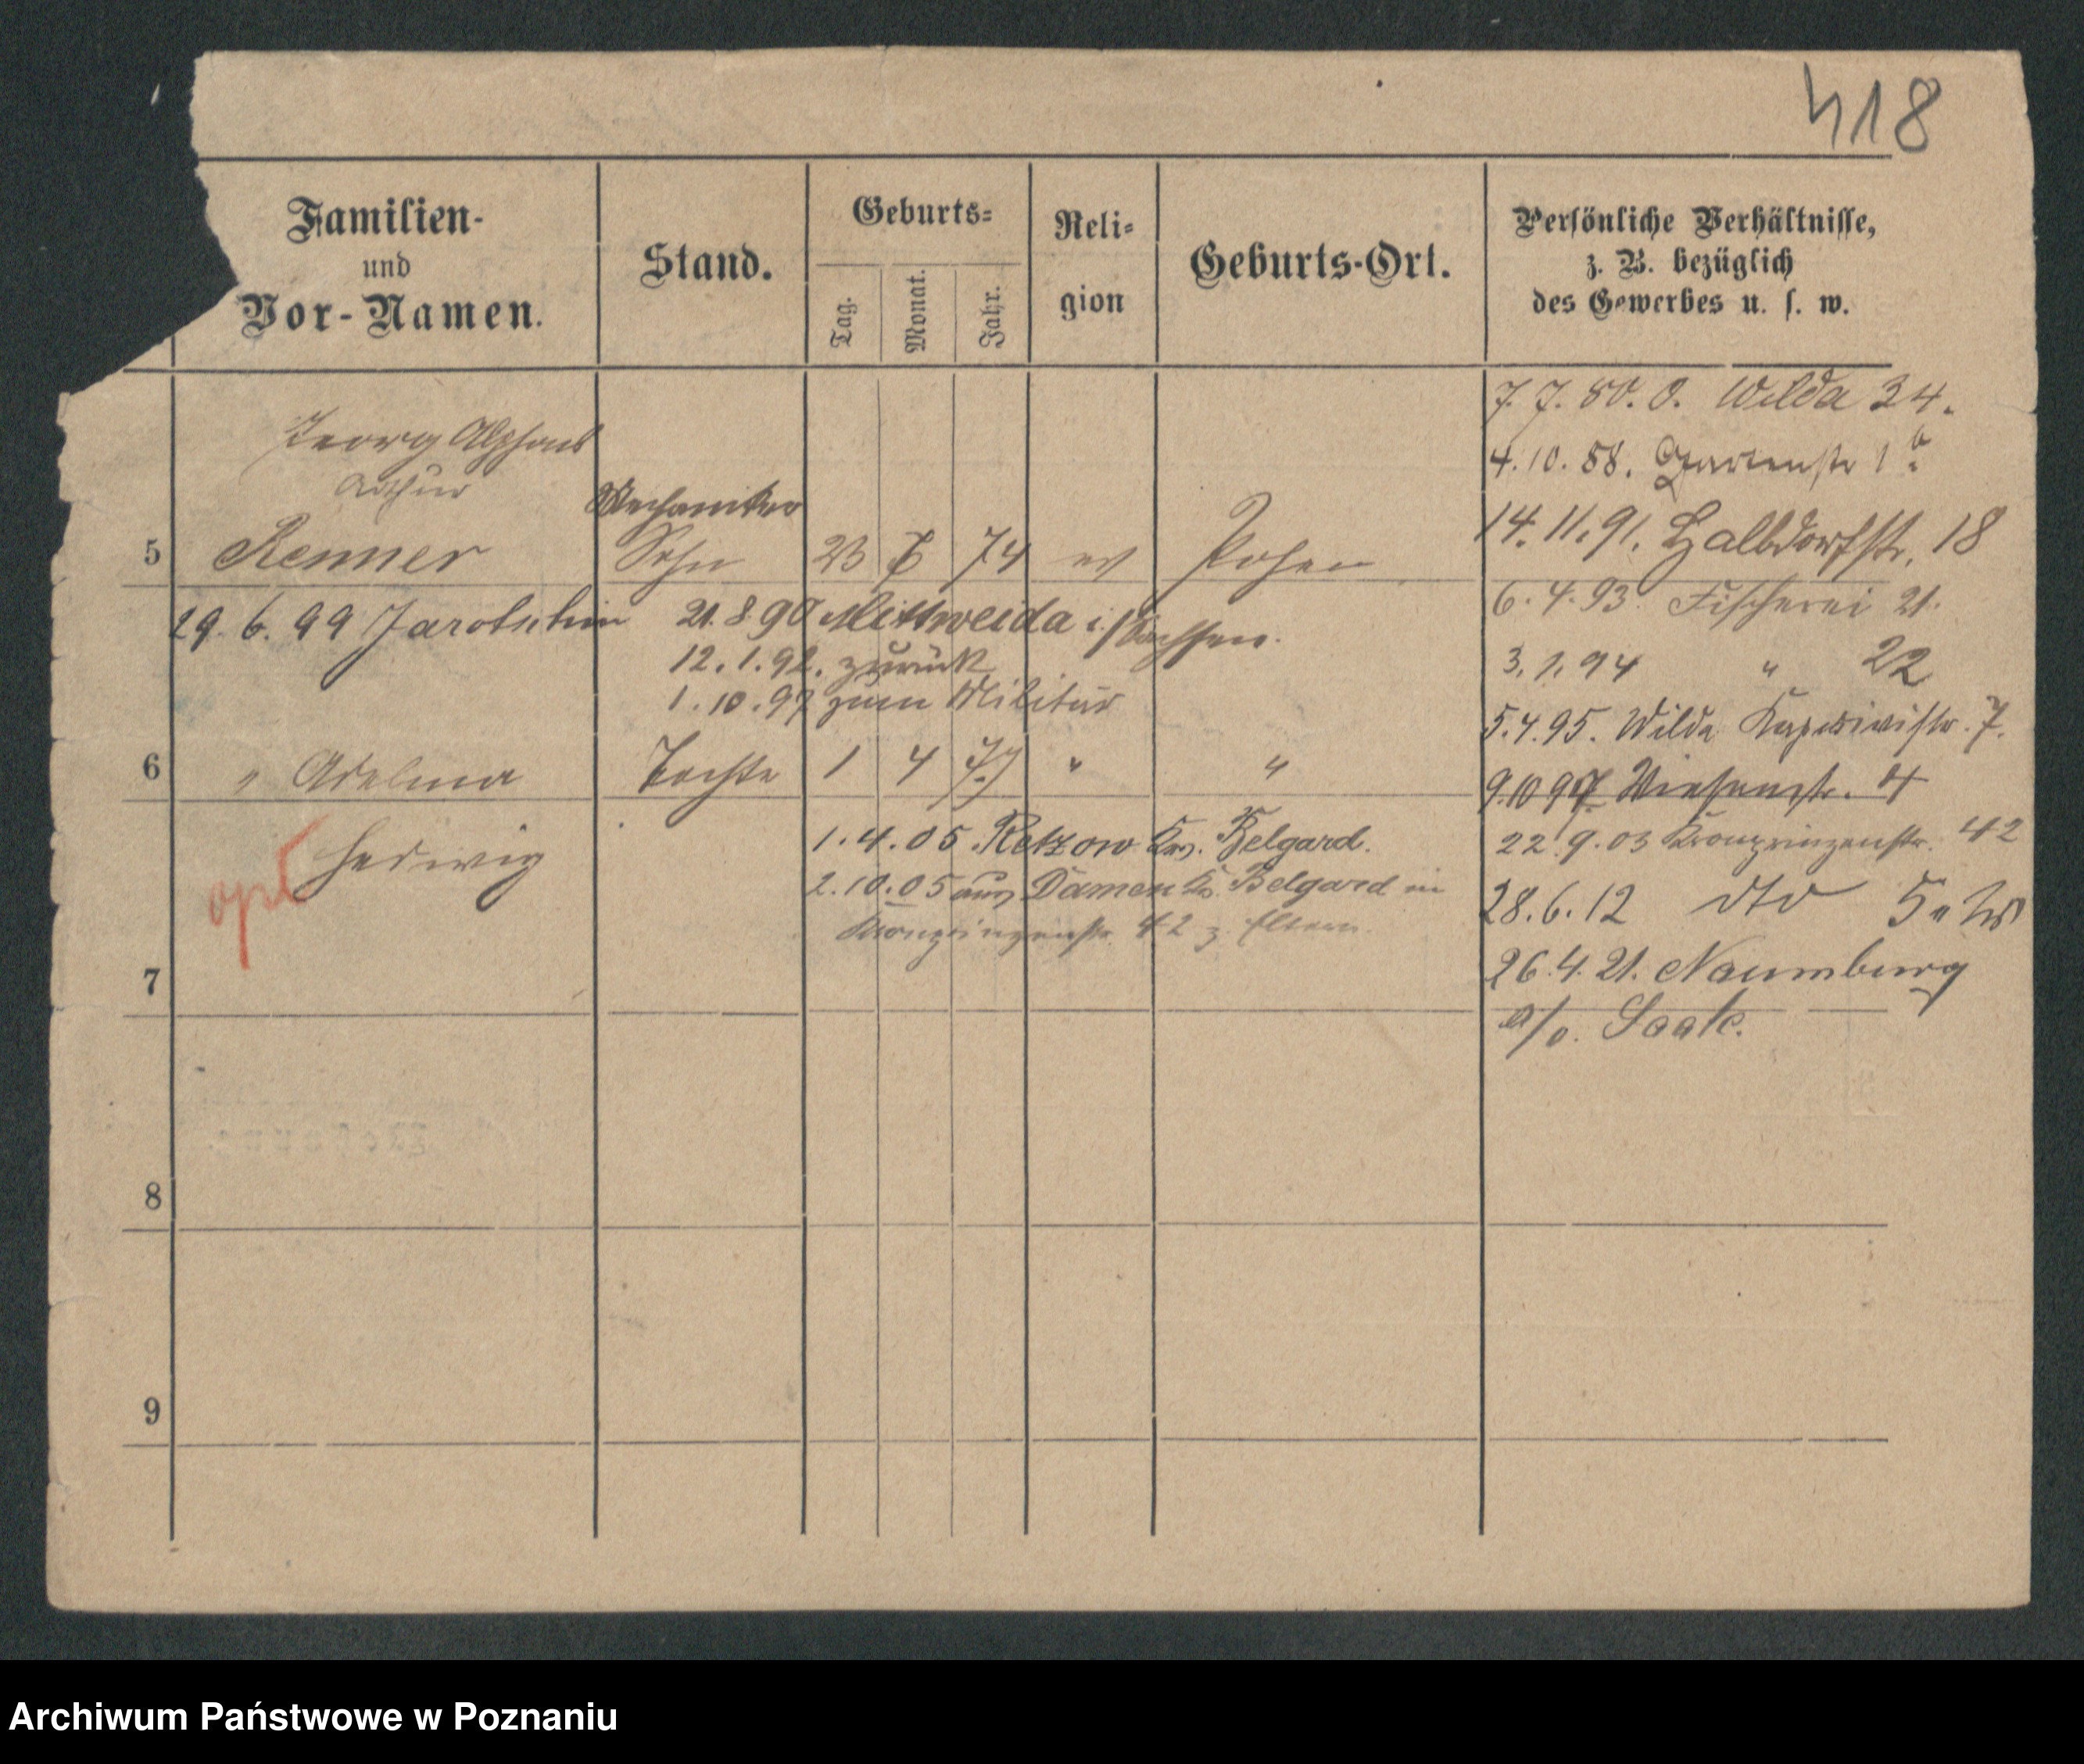 418
Familien-
und
Vor-Namen.
Stand.
Geburts-
Tag.
Monat.
Jahr.
Reli-
gion
Geburts-Ort.
Persönliche Verhältnisse,
z. B. bezüglich
des Gewerbes u. s. w.
Georg Alphons
Arthur
Mechaniker
5 Renner Sohn 23 6 74 ev Posen
29. 6. 99 Jarotschin
21. 8. 90 Mittweida i/Sachsen.
12. 1. 92. zurück
1. 10. 97 zum Militär
6 " Adelma Tochter 1 4 77 " "
Hedwig
opt
1. 4. 05. Retzow Krs. Belgard.
2. 10. 05 aus Damen Krs. Belgard in
Kronprinzenstr. 42 z. Eltern.
7
8
9
7. 7. 80. O. Wilda 34.
4. 10. 88. Gartenstr 1 b
14. 11. 91. Halbdorfstr. 18
6. 4. 93. Fischerei 21.
3. 1. 94 " 22
5. 4. 95. Wilda 7.
9. 10 97 Wiesenstr. 4
22. 9. 03 Kronprinzenstr. 42
28. 6. 12 dto 5
26. 4. 21. Naumburg
a/d. Saale.
Archiwum Państwowe w Poznaniu